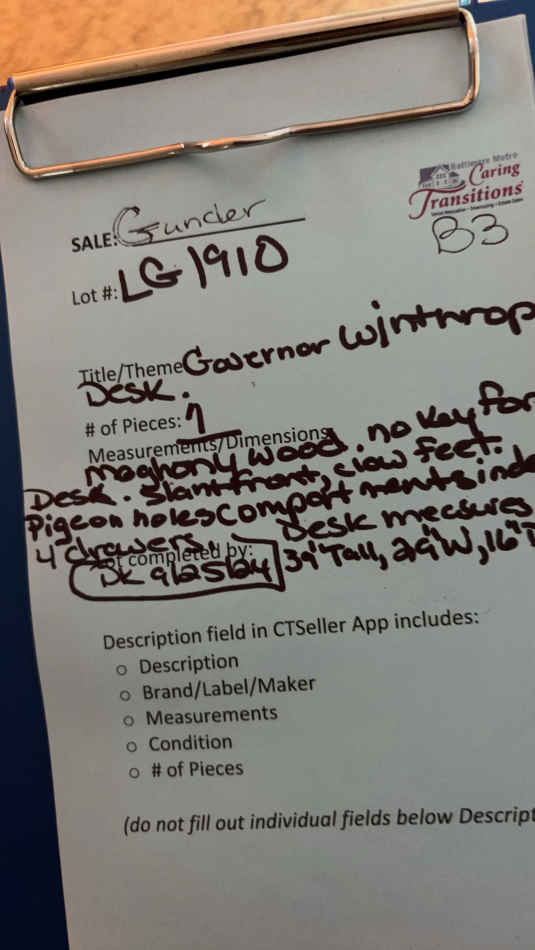 Baltimore Metro
Caring
Transitions
B3
SALE: Gunder
Lot #: LG1910
Title/Theme Governor Winthrop
Desk.
# of Pieces: 1
Measurements/Dimensions
moghony wood. no key for
Desk. Slant front, claw feet.
Pigeon holes compartments inde
4 drawers. Desk measures
Lot completed by: 39" Tall, 29"W, 16"D
DK 9/25/24
Description field in CTSeller App includes:
o Description
o Brand/Label/Maker
o Measurements
o Condition
o # of Pieces
(do not fill out individual fields below Descript